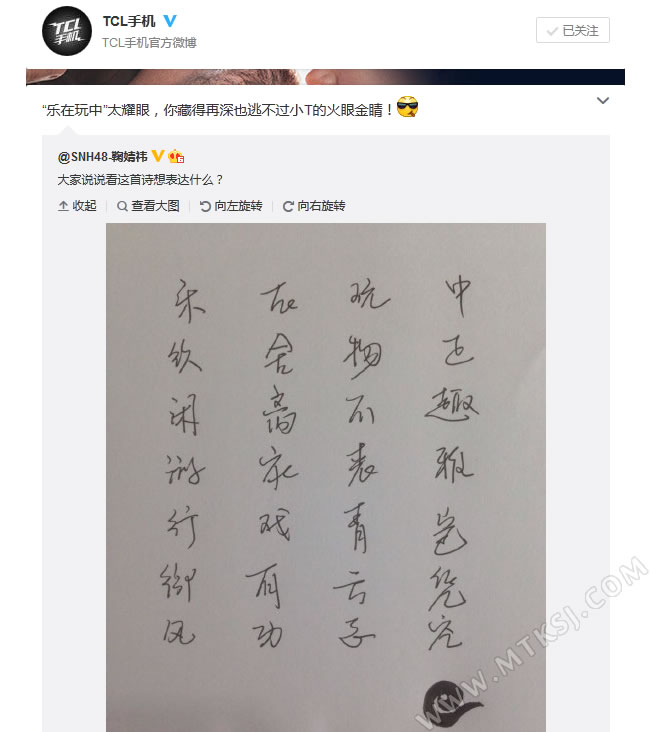 TCL手机
TCL手机
TCL手机官方微博
已关注
“乐在玩中”太耀眼，你藏得再深也逃不过小T的火眼金睛！
@SNH48-鞠婧祎
大家说说看这首诗想表达什么？
收起 查看大图 向左旋转 向右旋转
乐饮闲游行御风
在舍离家戏有功
玩物不丧青云志
中正趣雅岂凭空
WWW.MTKSJ.COM